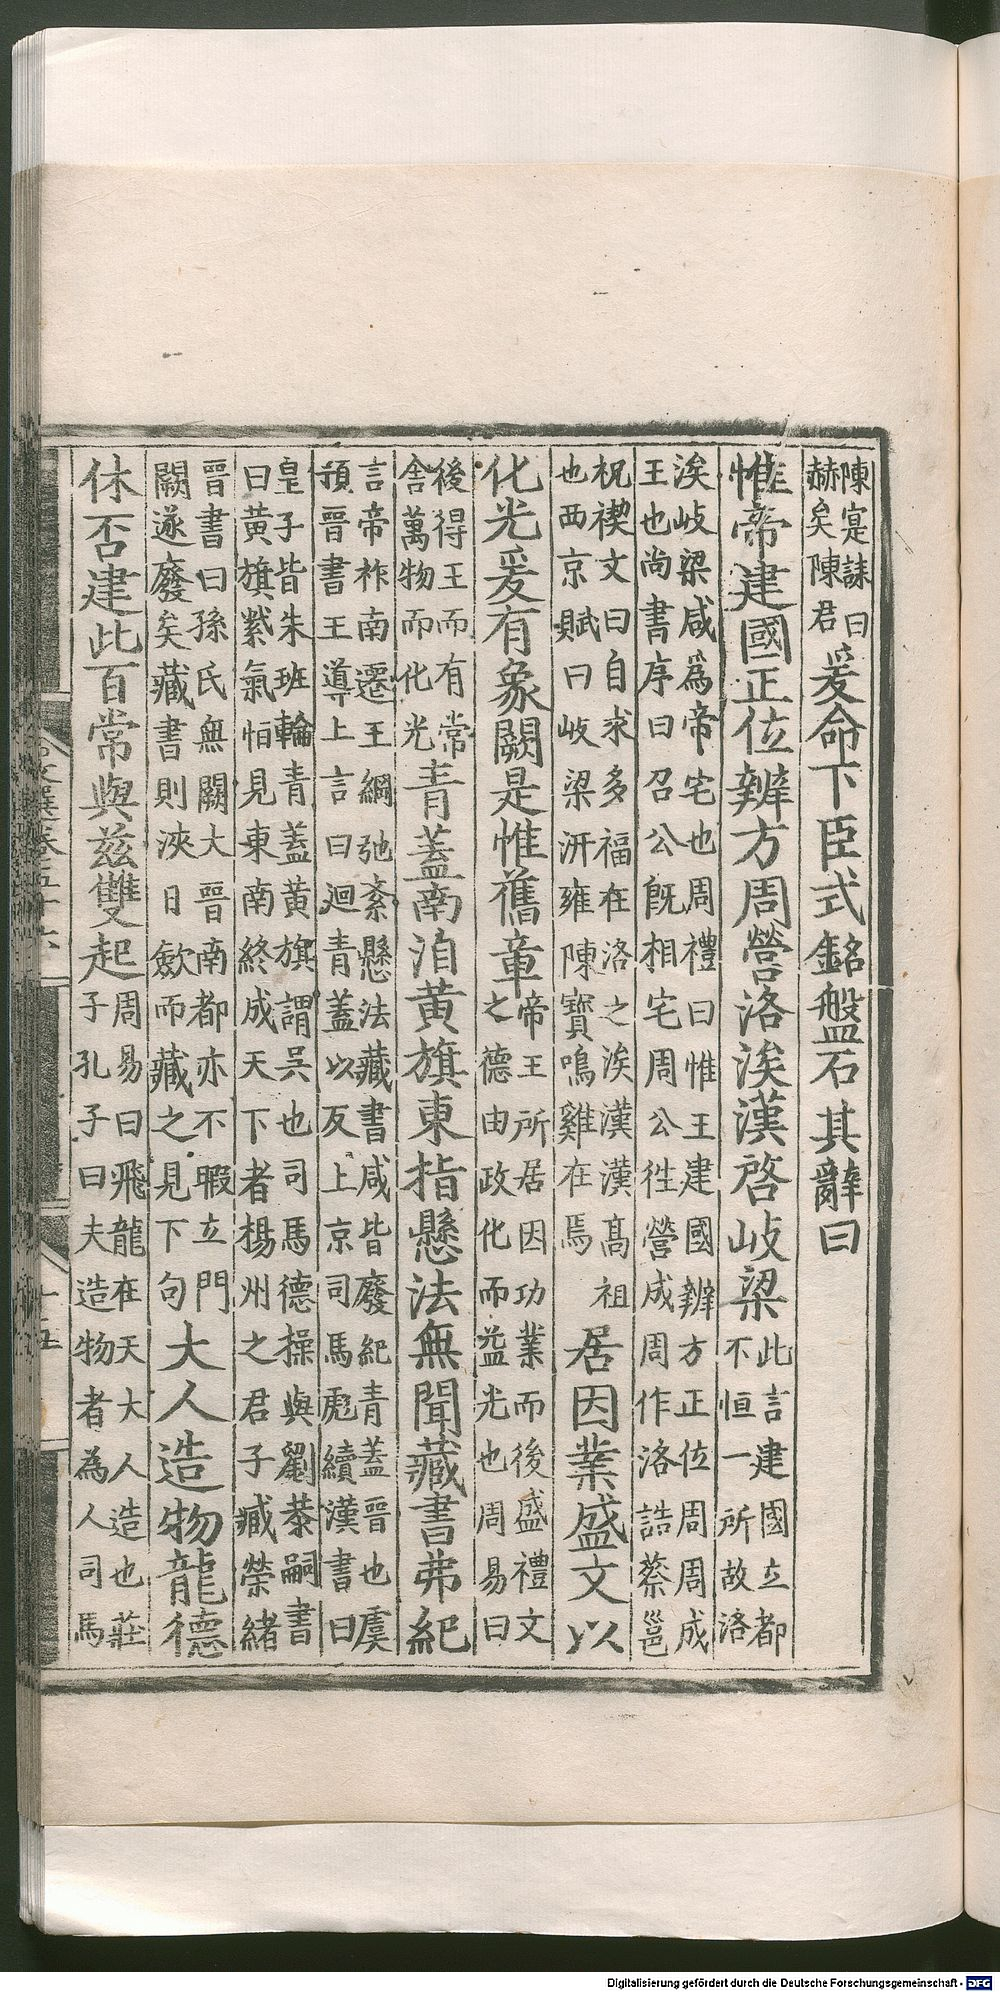 陳寔誄曰
赫矣陳君
爰命下臣式銘盤石其辭曰
惟帝建國正位辨方周營洛涘漢啓岐梁
此言建國立都
不恒一所故洛
涘岐梁咸爲帝宅也周禮曰惟王建國辨方正位周周成
王也尚書序曰召公旣相宅周公徃營成周作洛誥蔡邕
祝禊文曰自求多福在洛之涘漢漢髙祖
也西京賦曰岐梁汧雍陳寳鳴雞在焉
居因業盛文以
化光爰有象闕是惟舊章
帝王所居因功業而後盛禮文
之德由政化而益光也周易曰
後得王而有常
含萬物而化光
青蓋南洎黄旗東指懸法無聞藏書弗紀
言帝祚南遷王綱弛紊懸法藏書咸皆廢紀青蓋晋也虞
預晋書王導上言曰迴青蓋以反上京司馬彪續漢書曰
皇子皆朱班輪青蓋黄旗謂吴也司馬德操與劉恭嗣書
曰黄旗紫氣恒見東南終成天下者楊州之君子臧榮緒
晋書曰孫氏無闕大晋南都亦不暇立門
闕遂廢矣藏書則浹日歛而藏之見下句
大人造物龍德
休否建此百常與兹雙起
周易曰飛龍在天大人造也莊
子孔子曰夫造物者為人司馬
文選卷五十六
十五
Digitalisierung gefördert durch die Deutsche Forschungsgemeinschaft - DFG